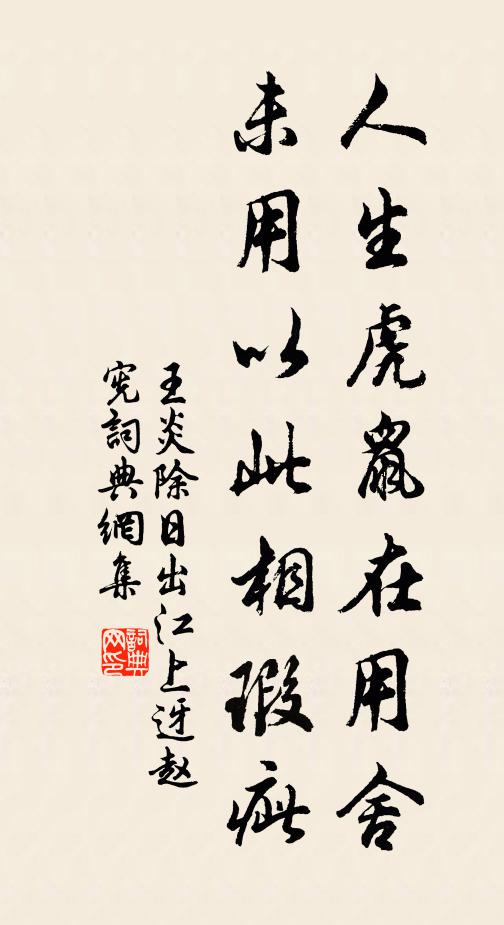 人生虎鼠在用舍
未用以此相瑕疵
王炎除日出江上迓赵
宪詞典網集
詞典网印